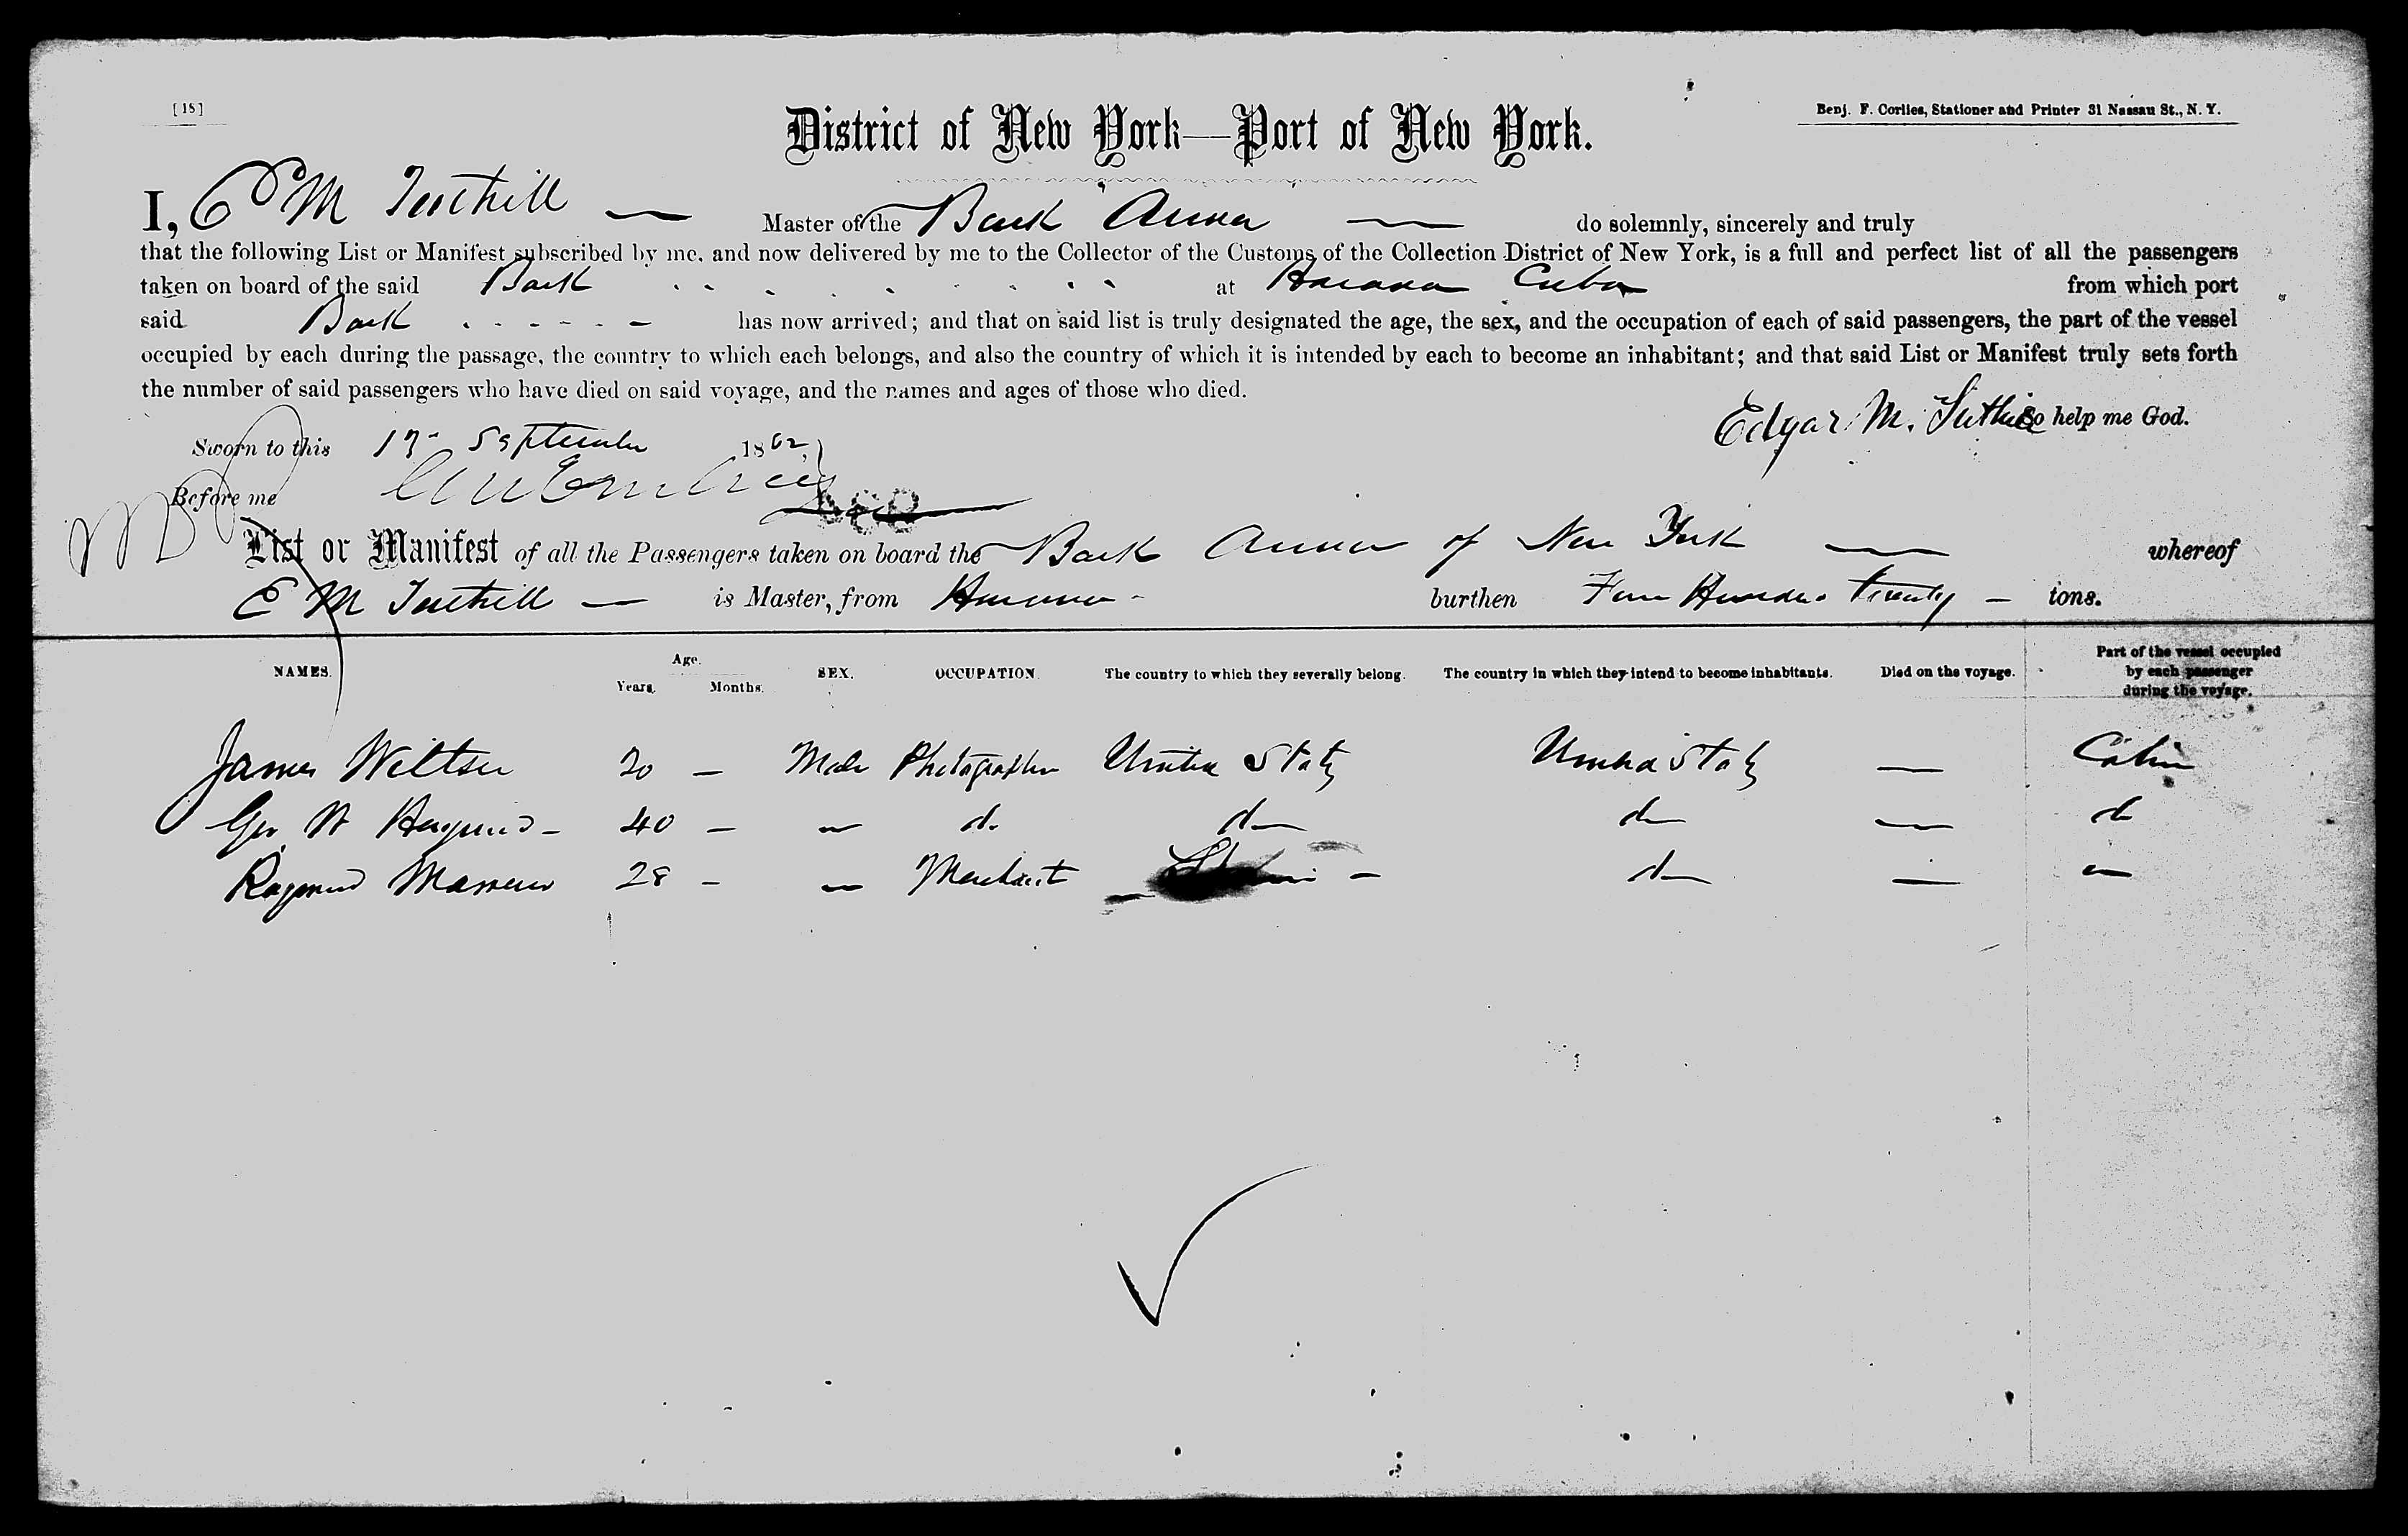 [18]
Benj. F. Corlies, Stationer and Printer 31 Nassau St., N. Y.
District of New York—Port of New York.
I, E M Tuthill — Master of the Bark Anna — do solemnly, sincerely and truly
that the following List or Manifest subscribed by me, and now delivered by me to the Collector of the Customs of the Collection District of New York, is a full and perfect list of all the passengers
taken on board of the said Bark at Havana Cuba from which port
said Bark has now arrived; and that on said list is truly designated the age, the sex, and the occupation of each of said passengers, the part of the vessel
occupied by each during the passage, the country to which each belongs, and also the country of which it is intended by each to become an inhabitant; and that said List or Manifest truly sets forth
the number of said passengers who have died on said voyage, and the names and ages of those who died.
Edgar M. Tuthill So help me God.
Sworn to this September 1862,
Before me
List or Manifest of all the Passengers taken on board the Bark Anna of New York — whereof
E M Tuthill — is Master, from Havana - burthen Four Hundred twenty — tons.
NAMES. Age. Years. Months. SEX. OCCUPATION. The country to which they severally belong. The country in which they intend to become inhabitants. Died on the voyage. Part of the vessel occupied by each passenger during the voyage.
James Wiltsee — Male Photographer United States United States — Cabin
Geo W 40 — do do do — do
Raymond 28 — Merchant do —